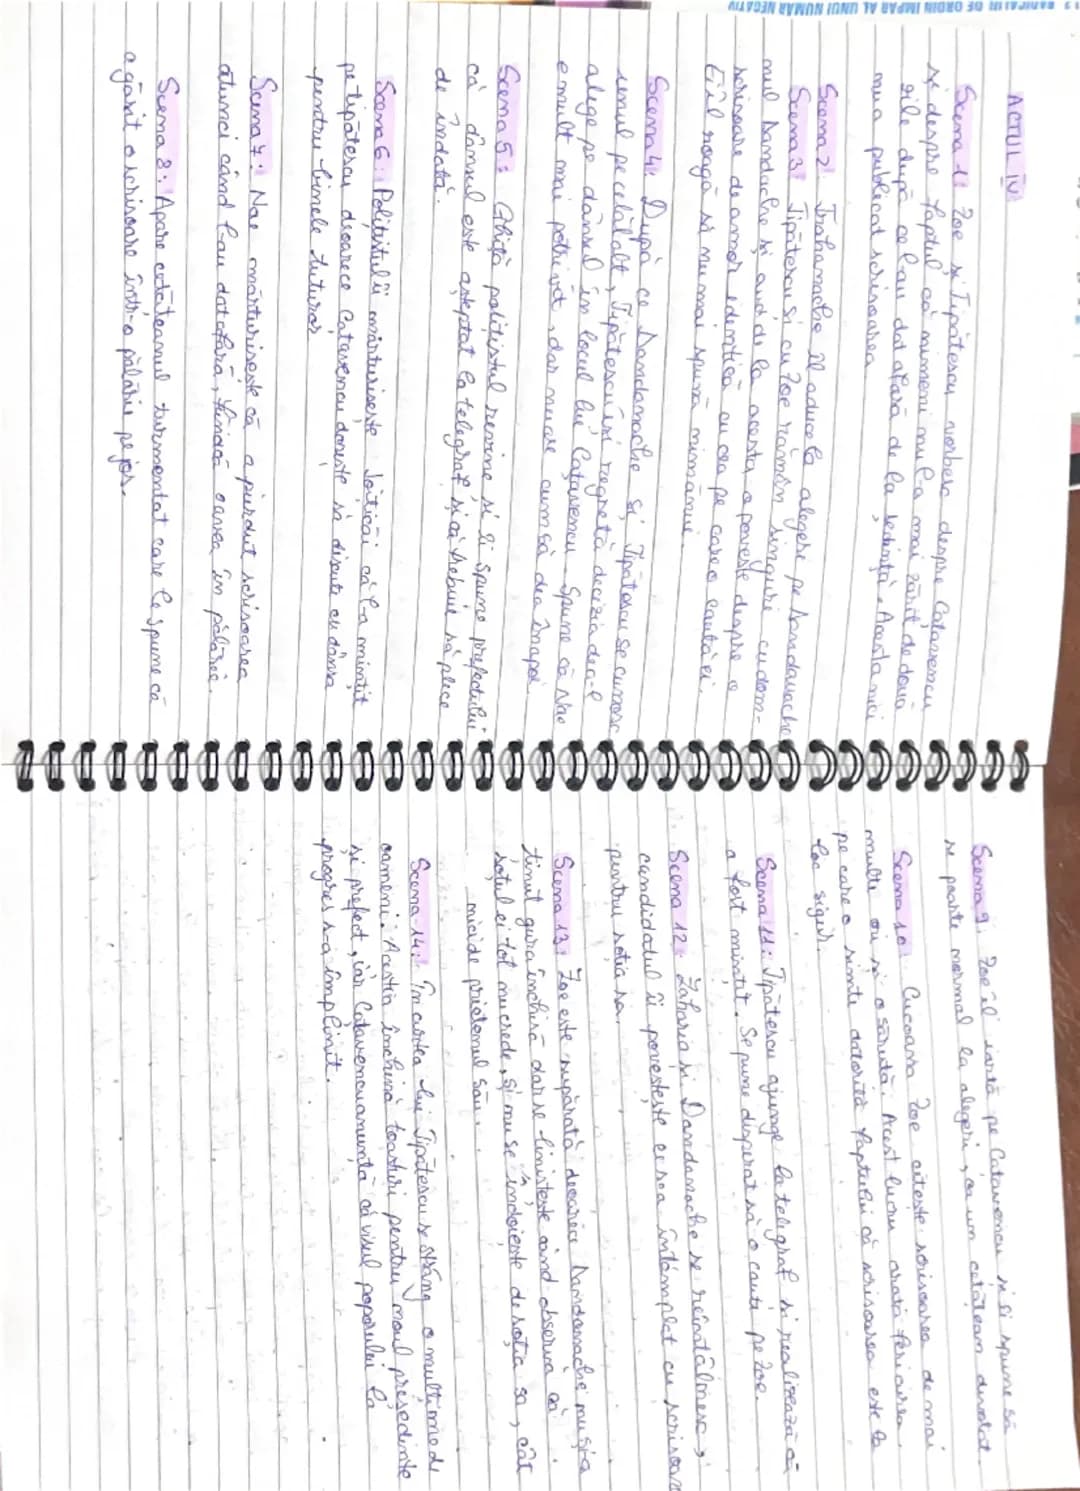 ACTUL IV
Scena 1: Zoe și Tipătescu vorbesc despre Cațavencu
și despre faptul că nimeni nu l-a mai zărit de două
zile după ce l-au dat afară de la ședință. Acesta nici
nu a publicat scrisoarea.
Scena 2: Trahanache îl aduce la alegeri pe Dandanache
Scena 3: Tipătescu și cu Zoe rămân singuri cu dom-
nul Dandache și aud de la acesta o poveste despre o
scrisoare de amor identică cu cea pe care o caută ei.
Ei îl roagă să nu mai spună nimănui.
Scena 4: După ce Dandanache și Tipătescu se cunosc
unul pe celălalt, Tipătescu își regretă decizia de a-l
alege pe dânsul în locul lui Cațavencu. Spune că Nae
e mult mai potrivit, dar nu are cum să dea înapoi.
Scena 5: Ghiță polițistul revine și îi spune prefectului
că dânsul este așteptat la telegraf și că trebuie să plece
de îndată.
Scena 6: Polițistul îi mărturisește Joițicăi că l-a mințit
pe tipătescu deoarece Catavencu dorește să discute cu dânsa
pentru binele tuturor
Scena 7: Nae mărturisește că a pierdut scrisoarea
atunci când l-au dat afară, fiindcă o avea în pălărie.
Scena 8: Apare cetățeanul turmentat care le spune că
a găsit o scrisoare într-o pălărie pe jos.
Scena 9: Zoe îl iartă pe Catavencu și îi spune să
se poarte normal la alegeri, ca un cetățean devotat.
Scena 10: Cucoana Zoe citește scrisoarea de mai
multe ori și o sărută. Acest lucru arată fericirea
pe care o simte datorită faptului că scrisoarea este la
loc sigur.
Scena 11: Tipătescu ajunge la telegraf și realizează că
a fost mințit. Se pune disperat să o caute pe Zoe.
Scena 12: Zaharia și Dandanache se reîntâlnesc,
candidatul îi povestește ce s-a întâmplat cu scrisoarea
pentru soția sa.
Scena 13: Zoe este supărată deoarece Dandanache nu și-a
ținut gura închisă dar se liniștește când observă că
soțul ei tot nu crede, și nu se îndoiește de soția sa, cât
nici de prietenul său.
Scena 14: În curtea lui Tipătescu se strâng o mulțime de
oameni. Aceștia închină toasturi pentru noul președinte
și prefect, iar Catavencu anunță că visul poporului la
progres s-a împlinit.